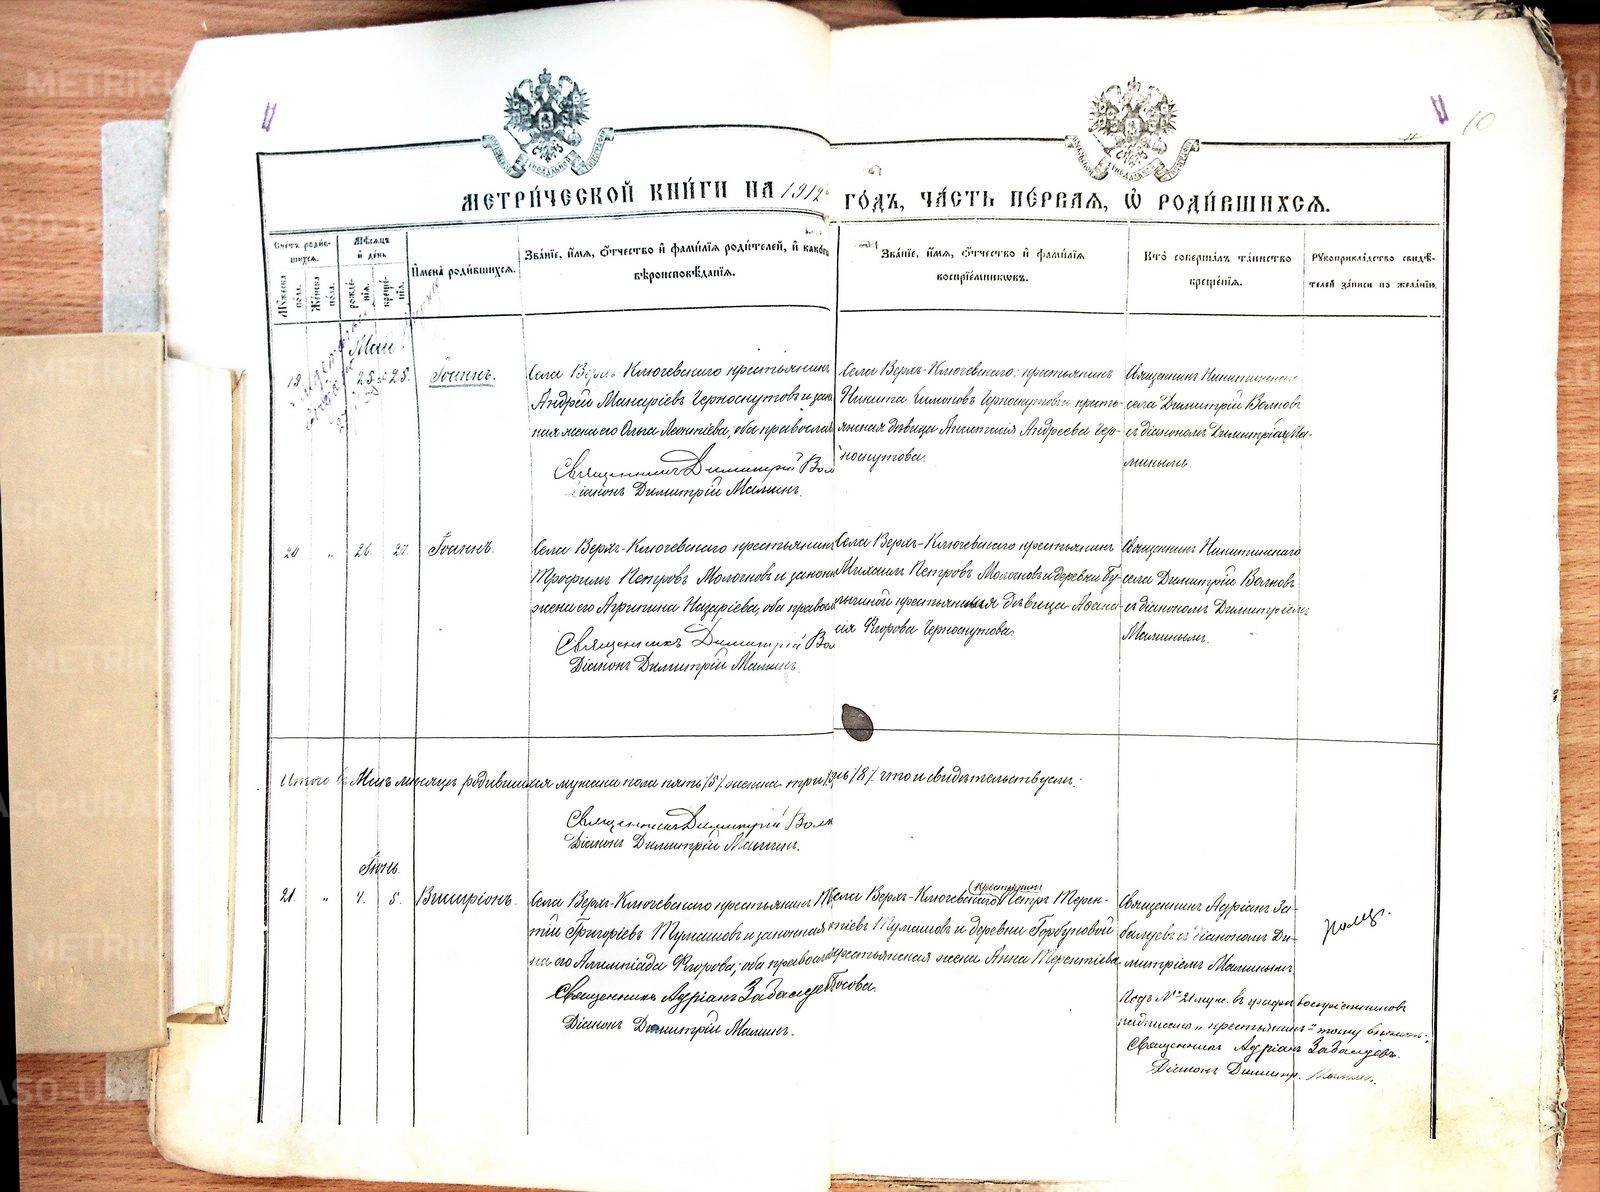 METRIKI
ASO-URAL
10
МЕТРИ́ЧЕСКОЙ КНИ́ГИ НА 1912 ГО́ДЪ, ЧА́СТЬ ПЕ́РВАЯ, Ѡ РОДИ́ВШИХСЯ.
Сче́тъ роди́вшихся.
Му́жеска по́ла.
Же́нска по́ла.
Мѣ́сяцъ и де́нь
рожде́нїя.
креще́нїя.
Имена̀ роди́вшихся.
Зва́нїе, и́мя, о́тчество и҆ фами́лїя роди́телей, и҆ како́го вѣроисповѣ́данїя.
Зва́нїе, и́мя, о́тчество и҆ фами́лїя воспрїе́мниковъ.
Кто̀ соверша́лъ та́инство креще́нїя.
Рукоприкла́дство свидѣ́телей за́писи по жела́нїю.
Май
19.
25. 25.
Іоаннъ.
Села Верхъ-Ключевскаго крестьянинъ
Андрей Макаріевъ Черноскутовъ и закон
ная жена его Ольга Леонтіева, оба православ
Священникъ Димитрій Вол
Діаконъ Димитрій Маминъ.
Села Верхъ-Ключевскаго: крестьянинъ
Никита Симоновъ Черноскутовъ и кресть-
янская дѣвица Анастасія Андреева Чер-
носкутова.
Священникъ Никитинскаго
села Димитрій Волковъ
съ діакономъ Димитріемъ Ма-
минымъ.
20 " 26. 27.
Іоаннъ.
Села Верхъ-Ключевскаго крестьянинъ
Трофимъ Петровъ Молоковъ и законн
жена его Агрипина Назаріева, оба правосл
Священникъ Димитрій Вол
Діаконъ Димитрій Маминъ.
Села Верхъ-Ключевскаго крестьянинъ
Михаилъ Петровъ Молоковъ и деревни Бу-
крестьянская дѣвица Афана-
сія Егорова Черноскутова.
Священникъ Никитинскаго
села Димитрій Волковъ
съ діакономъ Димитріемъ
Маминымъ.
Итого въ Маѣ мѣсяцѣ родившихся мужска пола пять /5/. женска три /3/ /8/. что и свидѣтельствуемъ:
Священникъ Димитрій Волк
Діаконъ Димитрій Маминъ.
Іюнь.
21. " 4. 5.
Виссаріонъ.
Села Верхъ-Ключевскаго крестьянинъ Те
тій Григоріевъ Тумашовъ и законная
на его Алимпіада Егорова, оба православ
Священникъ Адріанъ Забалуев
Діаконъ Димитрій Маминъ.
(крестьянинъ
Села Верхъ-Ключевскаго Петръ Терен-
тіевъ Тумашовъ и деревни Горбуновой
крестьянская жена Анна Терентіева
Босова.
Священникъ Адріанъ За-
балуевъ съ діакономъ Ди-
митріемъ Маминымъ
Подъ № 21 муж. въ графѣ воспріемниковъ
надписано "крестьянинъ" тому вѣрить:
Священникъ Адріанъ Забалуевъ.
Діаконъ Димитр. Маминъ.